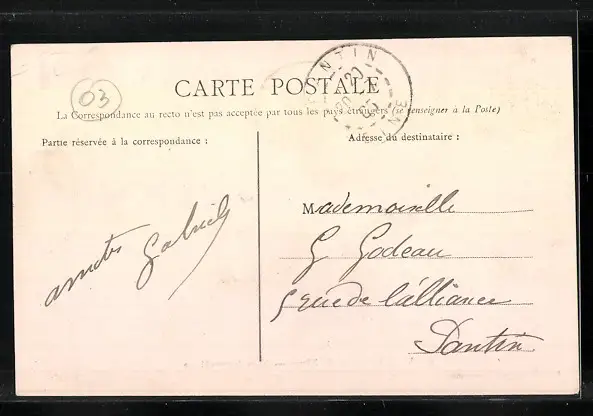 03
NTIN
CARTE POSTALE
La Correspondance au recto n'est pas acceptée par tous les pays étrangers (se renseigner à la Poste)
Partie réservée à la correspondance :
Adresse du destinataire :
Mademoiselle
G Godeau
5 rue de l'alliance
Pantin